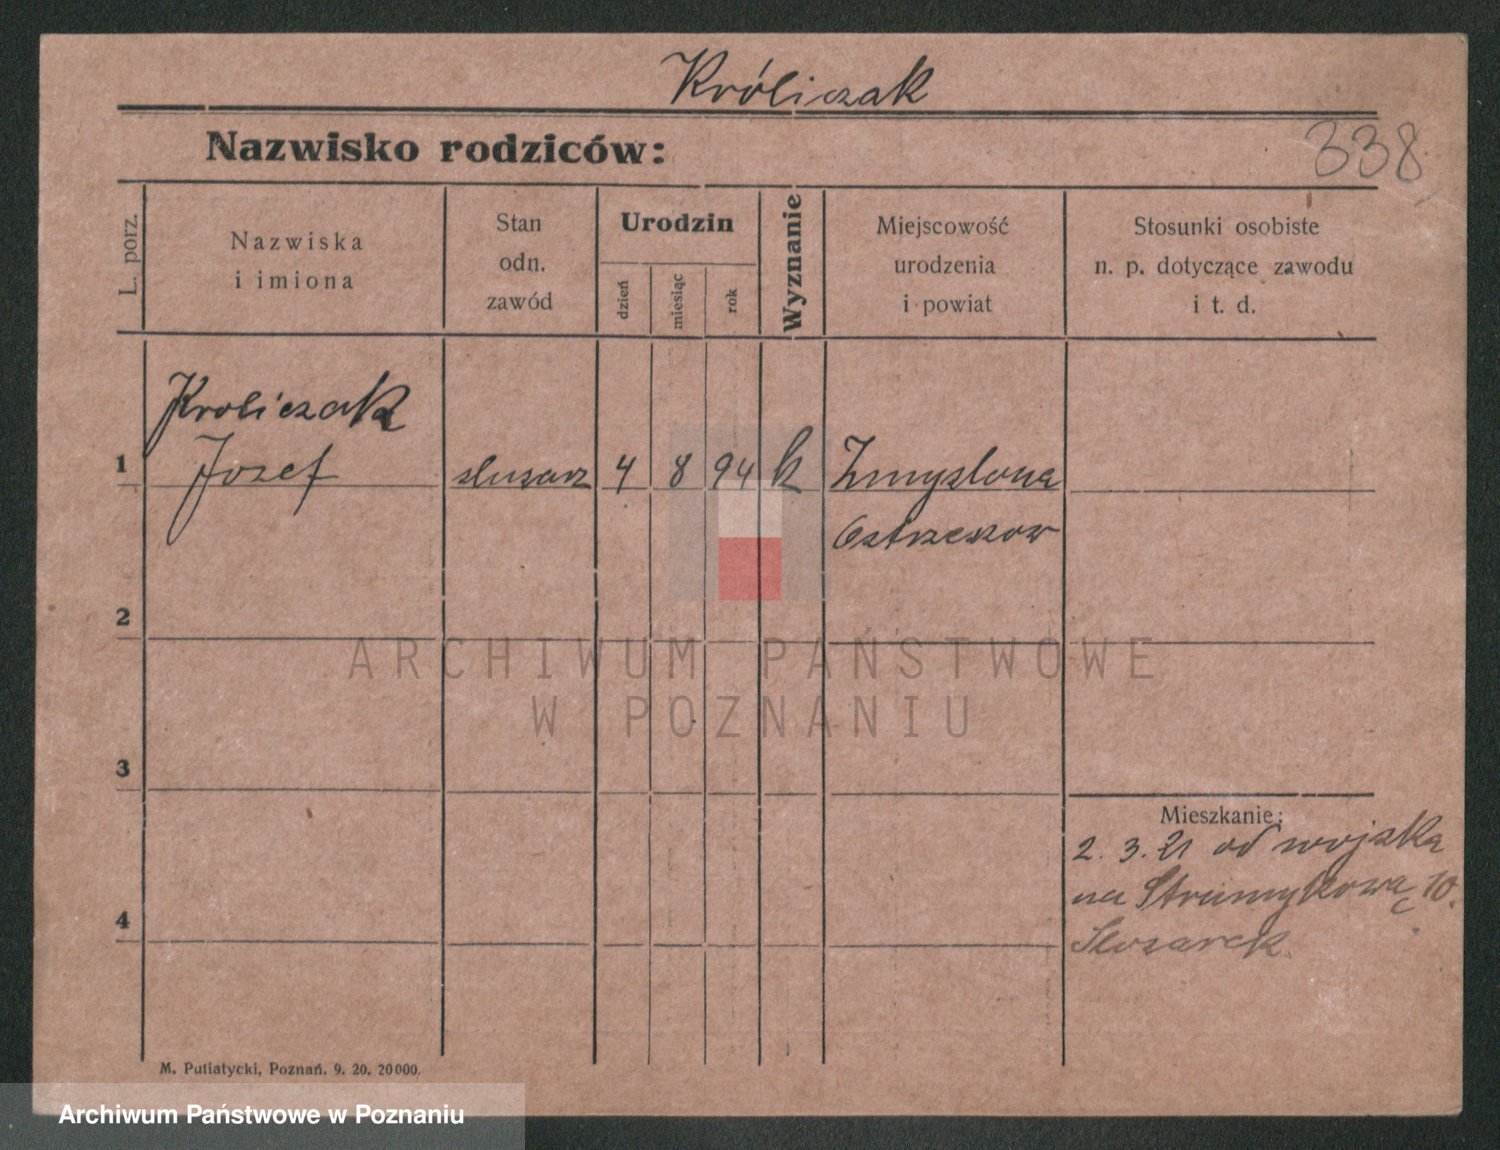 Króliczak
Nazwisko rodziców:
338
L. porz.
Nazwiska
i imiona
Stan
odn.
zawód
Urodzin
dzień
miesiąc
rok
Wyznanie
Miejscowość
urodzenia
i powiat
Stosunki osobiste
n. p. dotyczące zawodu
i t. d.
Kroliczak
1 Jozef slusarz 4 8 94 k Zmyslona
Ostrzeszow
2
3
Mieszkanie:
2. 3. 21 od wojska
na Strumykową 10.
4
Slosarek
M. Putiatycki, Poznań. 9. 20. 20000.
ARCHIWUM PAŃSTWOWE
W POZNANIU
Archiwum Państwowe w Poznaniu